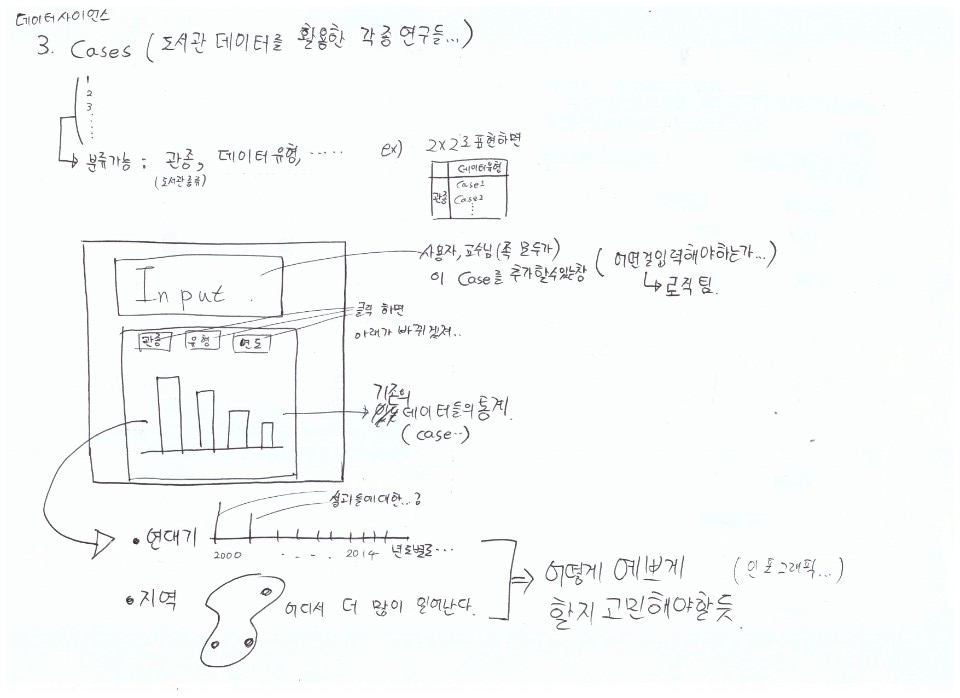 데이터사이언스
3. Cases (도서관 데이터를 활용한 각종 연구들...)
1
2
3
분류가능 : 관종, 데이터유형, .....
(도서관종류)
ex) 2x2로 표현하면
데이터유형
관종
Case1
Case2
Input
사용자, 교수님 (즉 모두가)
이 Case를 추가할수있는창
(어떤걸입력해야하는가...)
로직팀.
관종 유형 연도
클릭 하면
아래가 바뀌겠져..
기존의
데이터들의 통계.
(case..)
• 연대기
성과들에대한...?
2000 .... 2014 년도별로...
• 지역
어디서 더 많이 일어난다.
어떻게 예쁘게 (인포그래픽...)
할지 고민해야할듯